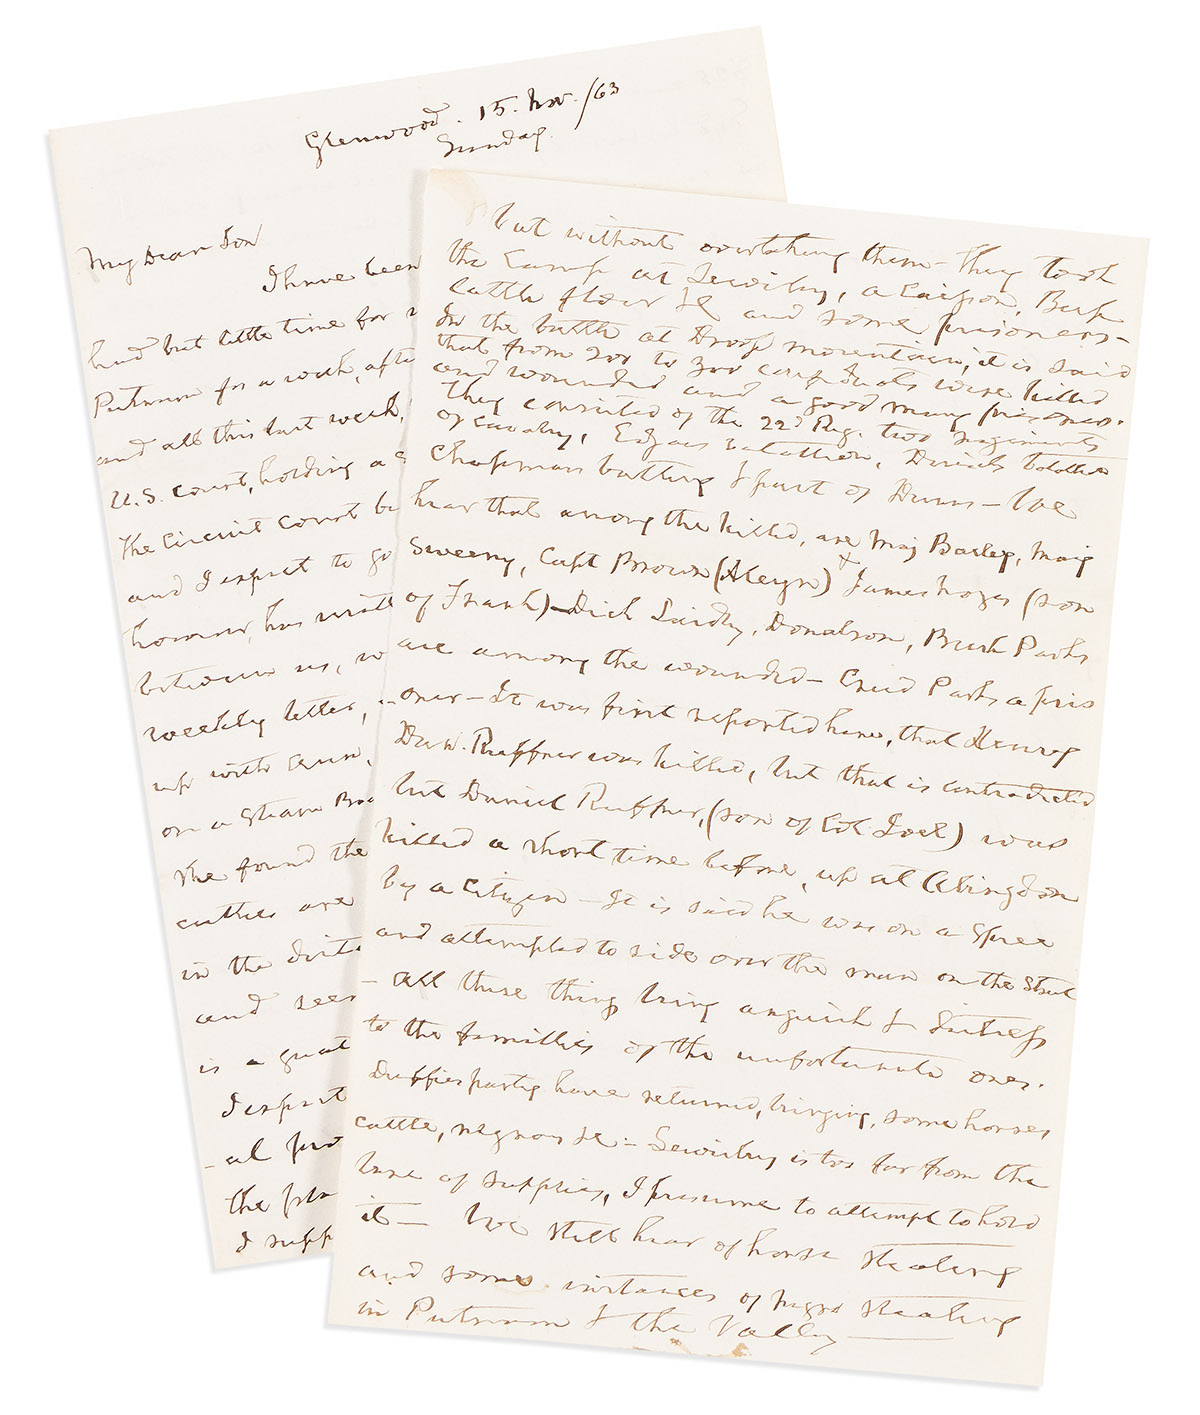 Glenwood. 15. Nov. /63
Sunday.
My Dear Son
I have been
had but little time for
Putnam for a week, after
and all this last week,
U.S. Court, holding a
the Circuit Court
and I expect to go
however, has
between us,
weekly letter,
up with
on a Steam Boa
She found the
cattle are
in the
and
is a great
I expect
-al
the
I supp
but without overtaking them - They took
the Camp at Lewisbg, a Caisson, Beef
Cattle flour &c and some prisoners -
In the battle at Droop mountain, it is said
that from 200 to 300 confederates were killed
and wounded and a good many prisoners.
They consisted of the 22d Reg. two regiments
of cavalry, Edgars battallion, Derricks battallion
Chapmans battery & part of Dunns - We
hear that among the killed, are Maj Bailey, Maj
Sweeny, Capt Brown (Aleyn) & James Noyes (son
of Frank) - Dick Laidly, Donalson, Burk Parks
are among the wounded - Creed Parks a pris
oner - It was first reported here, that Henry
Daw. Ruffner was killed, but that is contradicted
but Daniel Ruffner, (son of Col. Joel) was
killed a short time before, up at Abingdon
by a citizen - It is said he was on a Spree
and attempted to ride over the man on the Street
- All these things bring anguish & distress
to the families of the unfortunate ones.
Duffies party have returned, bringing, some horses
cattle, negroes &c - Lewisbug is too far from the
base of supplies, I presume to attempt to hold
it - We still hear of horse stealing
and some instances of negro stealing
in Putnam & the Valley